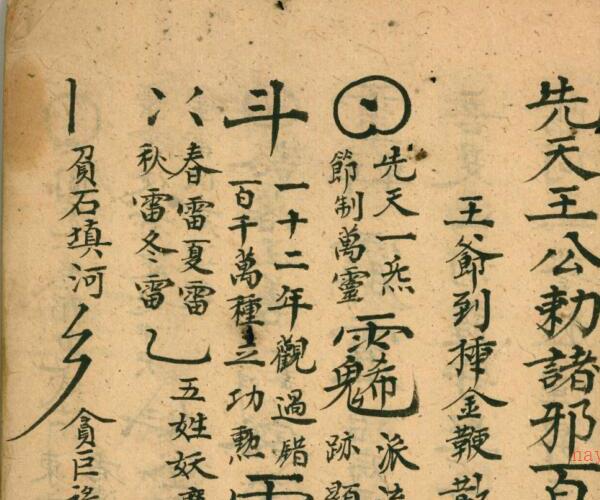 先天王公勅諸邪百
王爺列揮金鞭
先天一炁
節制萬靈
派
跡顯
斗
一十二年觀過錯
百千萬種立功勲
春雷夏雷
秋雷冬雷
乙
五姓妖
負石填河
貪巨